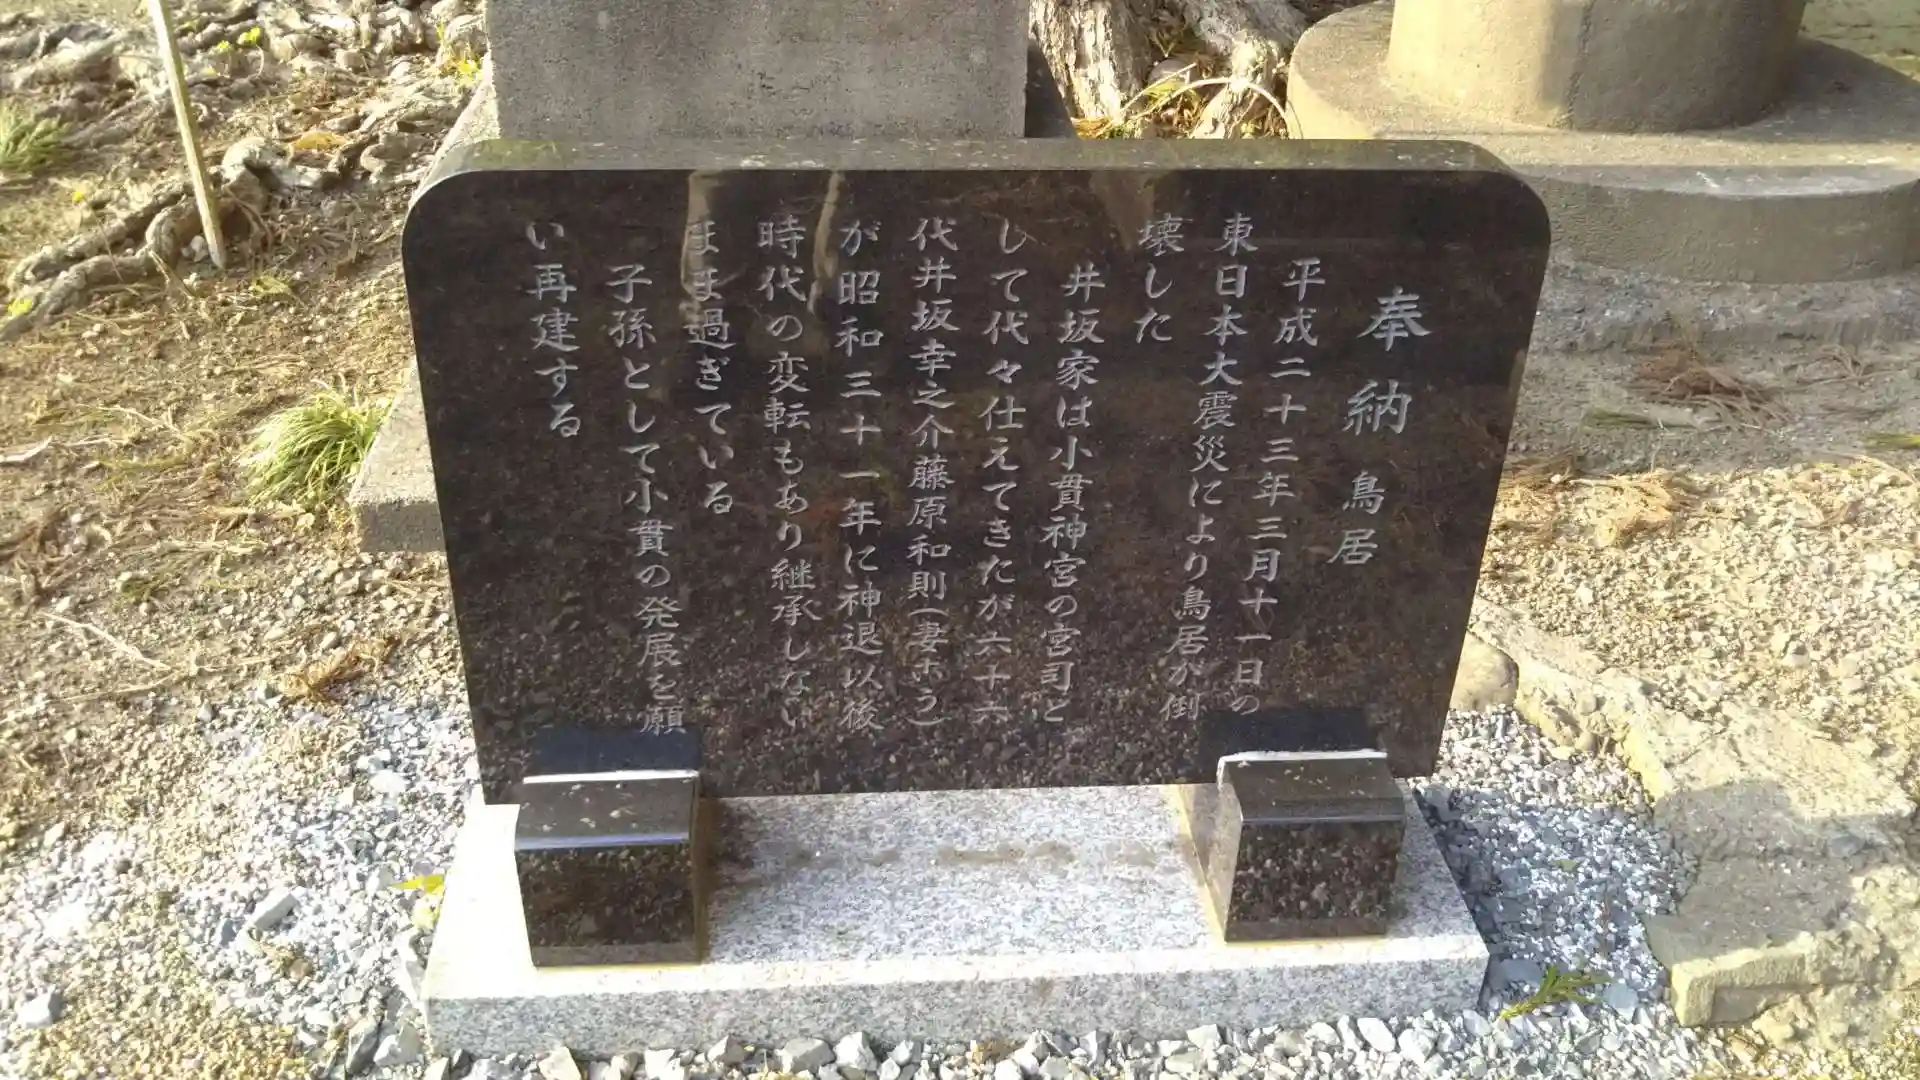 奉納 鳥居
平成二十三年三月十一日の
東日本大震災により鳥居が倒
壊した
井坂家は小貫神宮の宮司と
して代々仕えてきたが六十六
代井坂幸之介藤原和則(妻こう)
が昭和三十一年に神退以後
時代の変転もあり継承しない
まま過ぎている
子孫として小貫の発展を願
い再建する